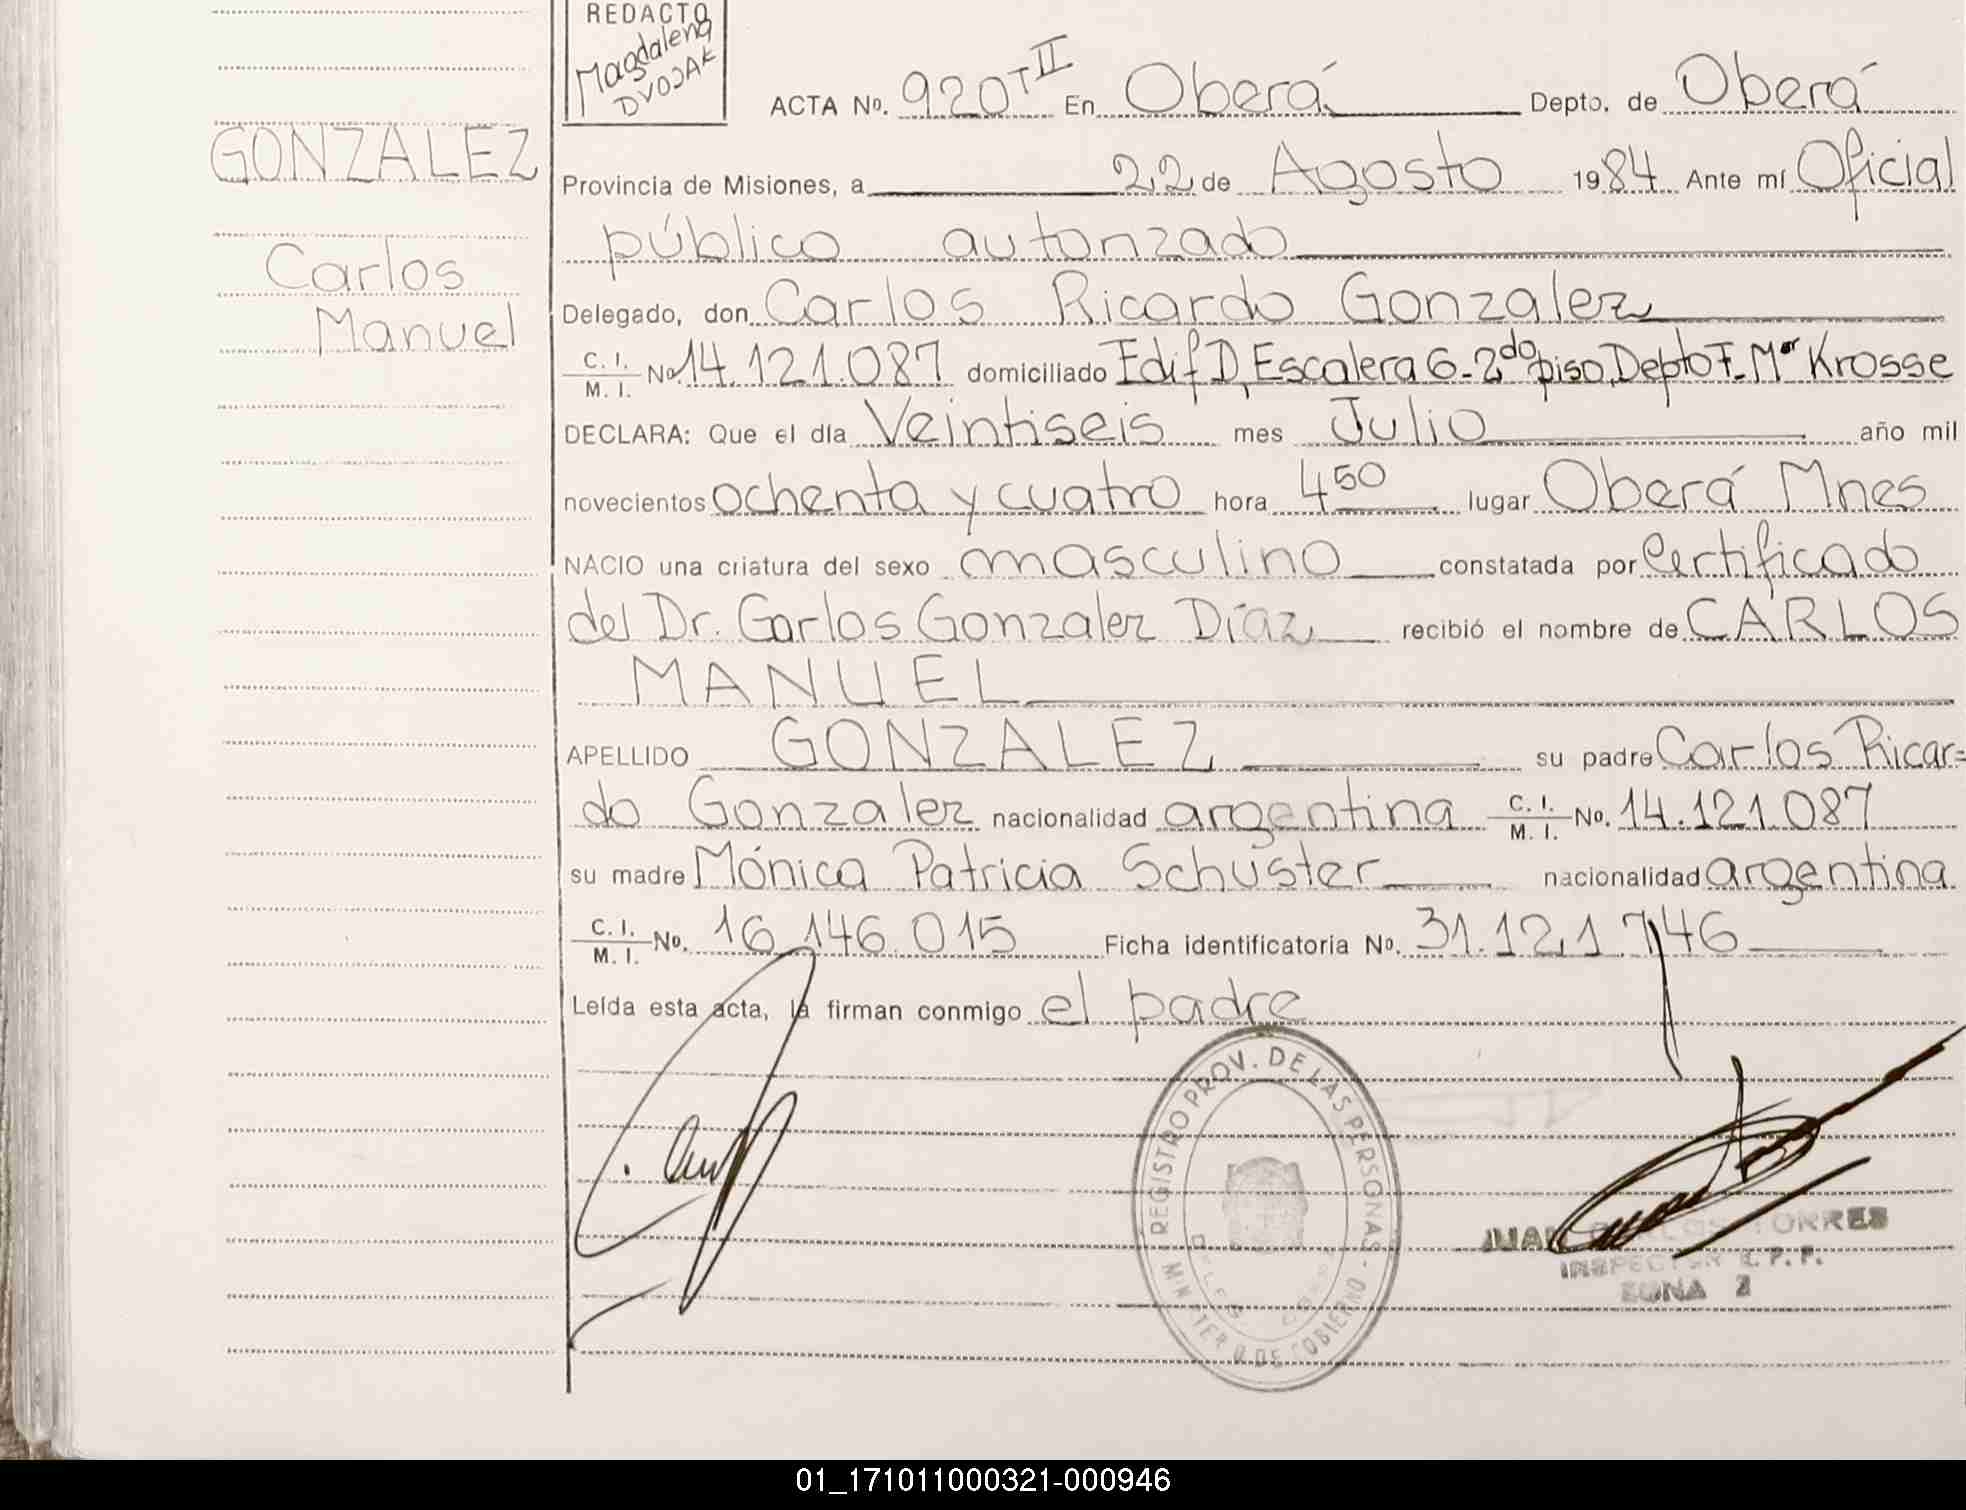 REDACTO
Magdalena
DVOJAK
ACTA No. 920 T II En Oberá Depto. de Oberá
GONZALEZ
Carlos
Manuel
Provincia de Misiones, a 22 de Agosto 1984 Ante mí Oficial
público autorizado
Delegado, don Carlos Ricardo Gonzalez
C. I. / M. I. No. 14.121.087 domiciliado Edif D, Escalera 6-2do piso, Depto F- Mor Krosse
DECLARA: Que el día Veintiseis mes Julio año mil
novecientos ochenta y cuatro hora 4 50 lugar Oberá Mnes
NACIO una criatura del sexo masculino constatada por Certificado
del Dr. Carlos Gonzalez Díaz recibió el nombre de CARLOS
MANUEL
APELLIDO GONZALEZ su padre Carlos Ricar=
do Gonzalez nacionalidad argentina C. I. / M. I. No. 14.121.087
su madre Mónica Patricia Schuster nacionalidad argentina
C. I. / M. I. No. 16.146.015 Ficha identificatoria No. 31.121.746
Leída esta acta, la firman conmigo el padre
REGISTRO PROV. DE LAS PERSONAS - MINISTERIO DE GOBIERNO
JUAN CARLOS TORRES
INSPECTOR R. P. P.
ZONA 2
01_171011000321-000946